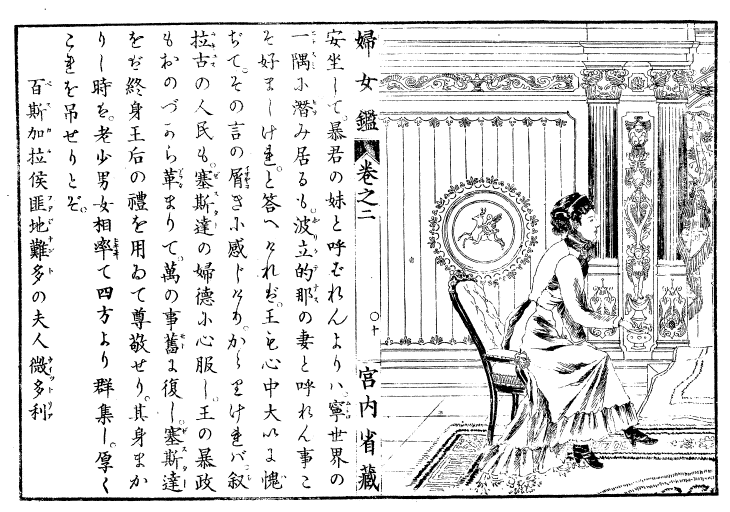 婦女鑑 巻之二 〇十 宮内省藏
安坐して。暴君の妹と呼ばれんよりハ、寧世界の
一隅に潜み居るも。波立的那の妻と呼れん事こ
そ好ましけれ。と答へけれバ、王も心中大いに愧
ぢて。その言の屑きに感じけり。かゝりけれバ叙
拉古の人民も。塞斯達の婦德に心服し。王の暴政
もおのづから革まりて。萬の事舊に復し。塞斯達
をバ終身王后の禮を用ゐて尊敬せり。其身まか
りし時を。老少男女相率て四方より群集し。厚く
これを吊せりとぞ。
百斯加拉侯匪地難多の夫人微多利